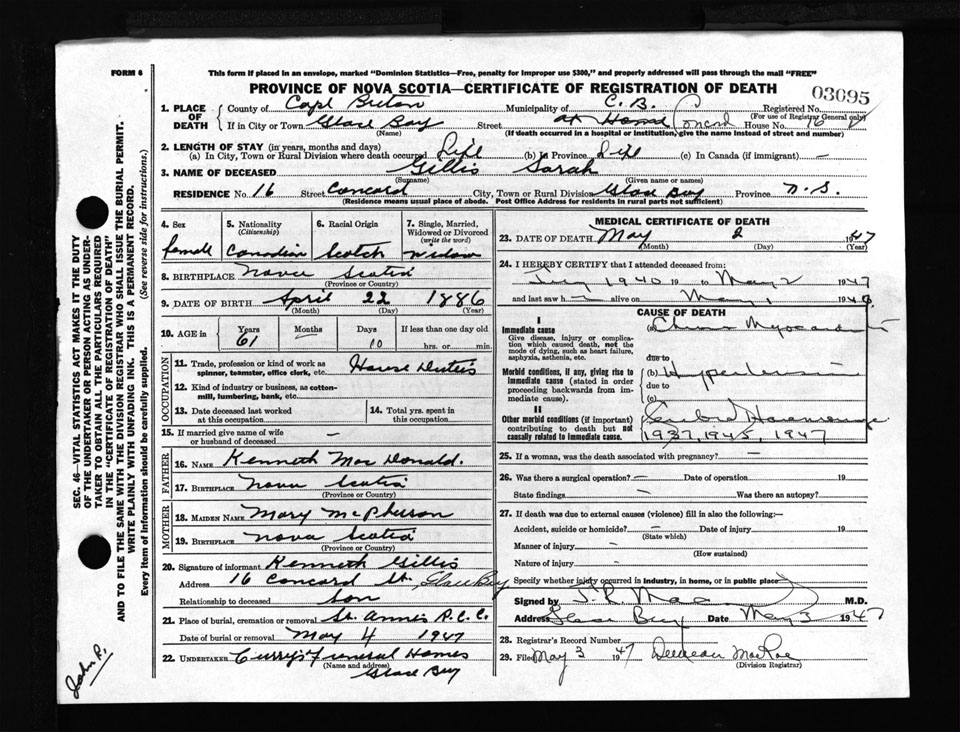 FORM 6
This form if placed in an envelope, marked "Dominion Statistics—Free, penalty for improper use $300," and properly addressed will pass through the mail "FREE"
PROVINCE OF NOVA SCOTIA—CERTIFICATE OF REGISTRATION OF DEATH
03095
1. PLACE OF DEATH
County of Cape Breton Municipality of C. B. Registered No.
(For use of Registrar General only)
If in City or Town Glace Bay Street at Home Concord House No. 16
(Name) (If death occurred in a hospital or institution, give the name instead of street and number)
2. LENGTH OF STAY (in years, months and days)
(a) In City, Town or Rural Division where death occurred Life (b) In Province Life (c) In Canada (if immigrant) —
3. NAME OF DECEASED Gillis Sarah
(Surname) (Given name or names)
RESIDENCE No. 16 Street Concord City, Town or Rural Division Glace Bay Province N. S.
(Residence means usual place of abode. Post Office Address for residents in rural parts not sufficient)
4. Sex
5. Nationality (Citizenship)
6. Racial Origin
7. Single, Married, Widowed or Divorced (write the word)
Canadian Scotch Widow
8. BIRTHPLACE Nova Scotia
(Province or Country)
9. DATE OF BIRTH April 22 1886
(Month) (Day) (Year)
10. AGE in Years Months Days If less than one day old
61 10 hrs. or min.
OCCUPATION
11. Trade, profession or kind of work as spinner, teamster, office clerk, etc. House Duties
12. Kind of industry or business, as cotton-mill, lumbering, bank, etc.
13. Date deceased last worked at this occupation
14. Total yrs. spent in this occupation
15. If married give name of wife or husband of deceased —
FATHER
16. NAME Kenneth MacDonald.
17. BIRTHPLACE Nova Scotia
(Province or Country)
MOTHER
18. MAIDEN NAME Mary McPherson
19. BIRTHPLACE Nova Scotia
(Province or Country)
20. Signature of informant Kenneth Gillis
Address 16 Concord St. Glace Bay
Relationship to deceased Son
21. Place of burial, cremation or removal St. Annes R.C.C.
Date of burial or removal May 4 1947
22. UNDERTAKER Curry's Funeral Homes
(Name and address)
Glace Bay
MEDICAL CERTIFICATE OF DEATH
23. DATE OF DEATH May 2 1947
(Month) (Day) (Year)
24. I HEREBY CERTIFY that I attended deceased from:
1940 19 to May 2 1947
and last saw h alive on May 1 194
CAUSE OF DEATH
I
Immediate cause
Give disease, injury or complication which caused death, not the mode of dying, such as heart failure, asphyxia, asthenia, etc.
(a)
due to
Morbid conditions, if any, giving rise to immediate cause (stated in order proceeding backwards from immediate cause).
(b) Hypertension
due to
(c)
II
Other morbid conditions (if important) contributing to death but not causally related to immediate cause.
1937, 1945, 1947
25. If a woman, was the death associated with pregnancy? —
26. Was there a surgical operation? — Date of operation 19
State findings — Was there an autopsy?
27. If death was due to external causes (violence) fill in also the following:—
Accident, suicide or homicide? — Date of injury 19
(State which)
Manner of injury —
(How sustained)
Nature of injury —
Specify whether injury occurred in industry, in home, or in public place
Signed by M.D.
Address Glace Bay Date May 3 1947
28. Registrar's Record Number
29. Filed May 3 1947 MacRae
(Division Registrar)
SEC. 46—VITAL STATISTICS ACT MAKES IT THE DUTY OF THE UNDERTAKER OR PERSON ACTING AS UNDERTAKER TO OBTAIN ALL THE PARTICULARS REQUIRED IN THE "CERTIFICATE OF REGISTRATION OF DEATH" AND TO FILE THE SAME WITH THE DIVISION REGISTRAR WHO SHALL ISSUE THE BURIAL PERMIT.
WRITE PLAINLY WITH UNFADING INK. THIS IS A PERMANENT RECORD.
Every item of information should be carefully supplied. (See reverse side for instructions.)
John P.